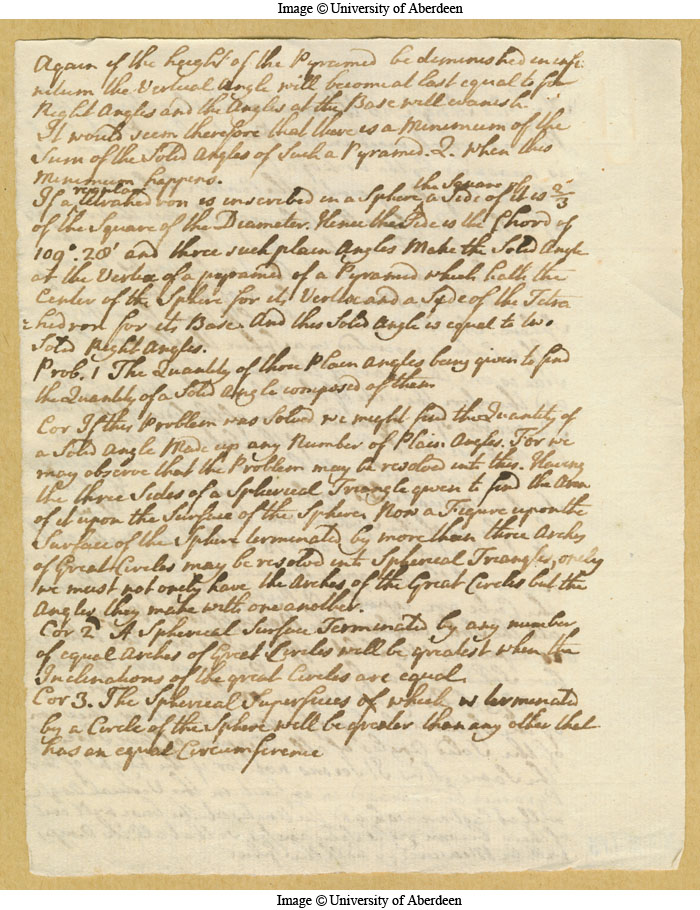 Image © University of Aberdeen
Again if the height of the Pyramid be diminished infi
nitum the Vertical Angle will become at last equal to four
Right Angles and the Angles at the Base will evanish.
It would seem therefore that there is a Minimum of the
Sum of the Solid Angles of Such a Pyramid. Q. when this
Minimum happens.
If a regular tetrahedron is inscribed in a Sphere, the Square of a Side of it is 2/3
of the Square of the Diameter. Hence the Side is the Chord of
109°. 28' and three such plain Angles Make the Solid Angle
at the Vertex of a pyramid of a Pyramid which hath the
Center of the Sphere for its Vertex and a Syde of the Tetra
hedron for its Base. And this Solid Angle is equal to two
Solid Right Angles.
Prob. 1 The Quantity of three Plain Angles being given to find
the Quantity of a Solid Angle composed of them
Cor If this Problem was Solved we might find the Quantity of
a Solid Angle Made up any Number of Plain Angles. For we
may observe that the Problem may be resolved into this. Having
the three Sides of a Spherical Triangle given to find the Area
of it upon the Surface of the Sphere. Now a Figure upon the
Surface of the Sphere terminated by more than three Arches
of Great Circles may be resolved into Spherical Triangles, onely
we must not onely have the Arches of the Great Circles but the
Angles they make with one another.
Cor 2d A Spherical Surface Terminated by any number
of equal Arches of Great Circles will be greatest when the
Inclinations of the great Circles are equal.
Cor 3. The Spherical Superfices of which is terminated
by a Circle of the Sphere will be greater than any other that
has an equal Circumference
Image © University of Aberdeen